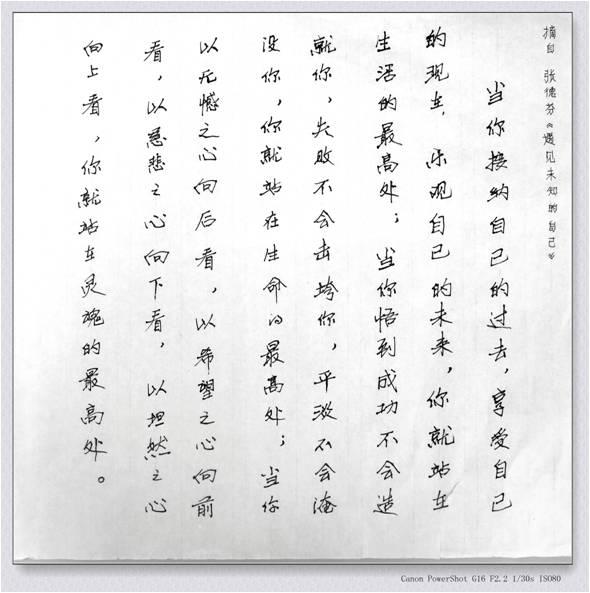 摘自 张德芬《遇见未知的自己》
当你接纳自己的过去，享受自己
的现在，乐观自己的未来，你就站在
生活的最高处；当你悟到成功不会造
就你，失败不会击垮你，平淡不会淹
没你，你就站在生命的最高处；当你
以无憾之心向后看，以希望之心向前
看，以慈悲之心向下看，以坦然之心
向上看，你就站在灵魂的最高处。
Canon PowerShot G16 F2.2 1/30s ISO80